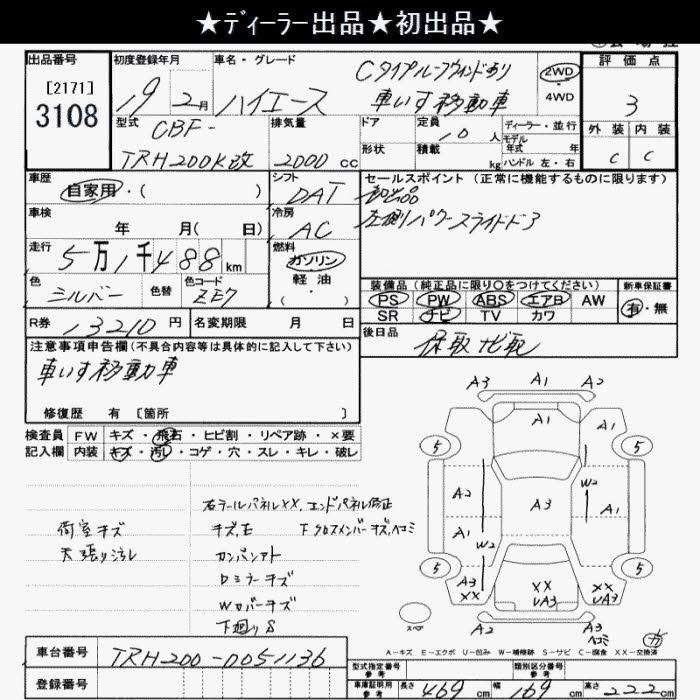 ★ディーラー出品★初出品★
出品番号
[2171]
3108
初度登録年月
19 2 月
車名・グレード
ハイエース
Cタイプルーフウィンドあり
車いす移動車
2WD
4WD
評価点
3
外装 内装
C C
型式
CBF-
TRH200K改
排気量
2000 cc
ドア
形状
定員
10 人
積載
kg
ディーラー・並行
モデル
年式 年
ハンドル 左・右
車歴
自家用・( )
シフト
DAT
セールスポイント (正常に機能するものに限ります)
初出品
左側パワースライドドア
車検
年 月( 日)
冷房
AC
走行
5万1千488 km
燃料
ガソリン
軽油
( )
色
シルバー
色替
色コード
ZE7
装備品 (純正品に限り○をつけてください)
PS PW ABS エアB AW
SR ナビ TV カワ
新車保証書
有・無
R券
13210 円
名変期限 月 日
後日品
保取 ナビ取
注意事項申告欄 (不具合内容等は具体的に記入して下さい)
車いす移動車
修復歴 有 [箇所 ]
検査員
記入欄
FW キズ・飛石・ヒビ割・リペア跡・×要
内装 キズ・汚レ・コゲ・穴・スレ・キレ・破レ
荷室キズ
天張り汚レ
右テールパネルXX、エンドパネル修正
キズ,E 下クロスメンバーキズ,ヘコミ
カンバンアト
Dミラーキズ
Wカバーキズ
下廻りS
A3 A1 A2
A1 A1
5 5
A2 W2 A3 A1
A1 W2
5 5
A3
XX
XX
UA3
XX
UA3
スペア
A2 A3
ヘコミ
A-キズ E-エクボ U-凹み W-補修跡 S-サビ C-腐食 XX-交換済
車台番号
TRH200-0051136
登録番号
型式指定番号
類別区分番号
参考
車庫証明用
参考
長さ 469 cm 幅 169 cm 高さ 222 cm